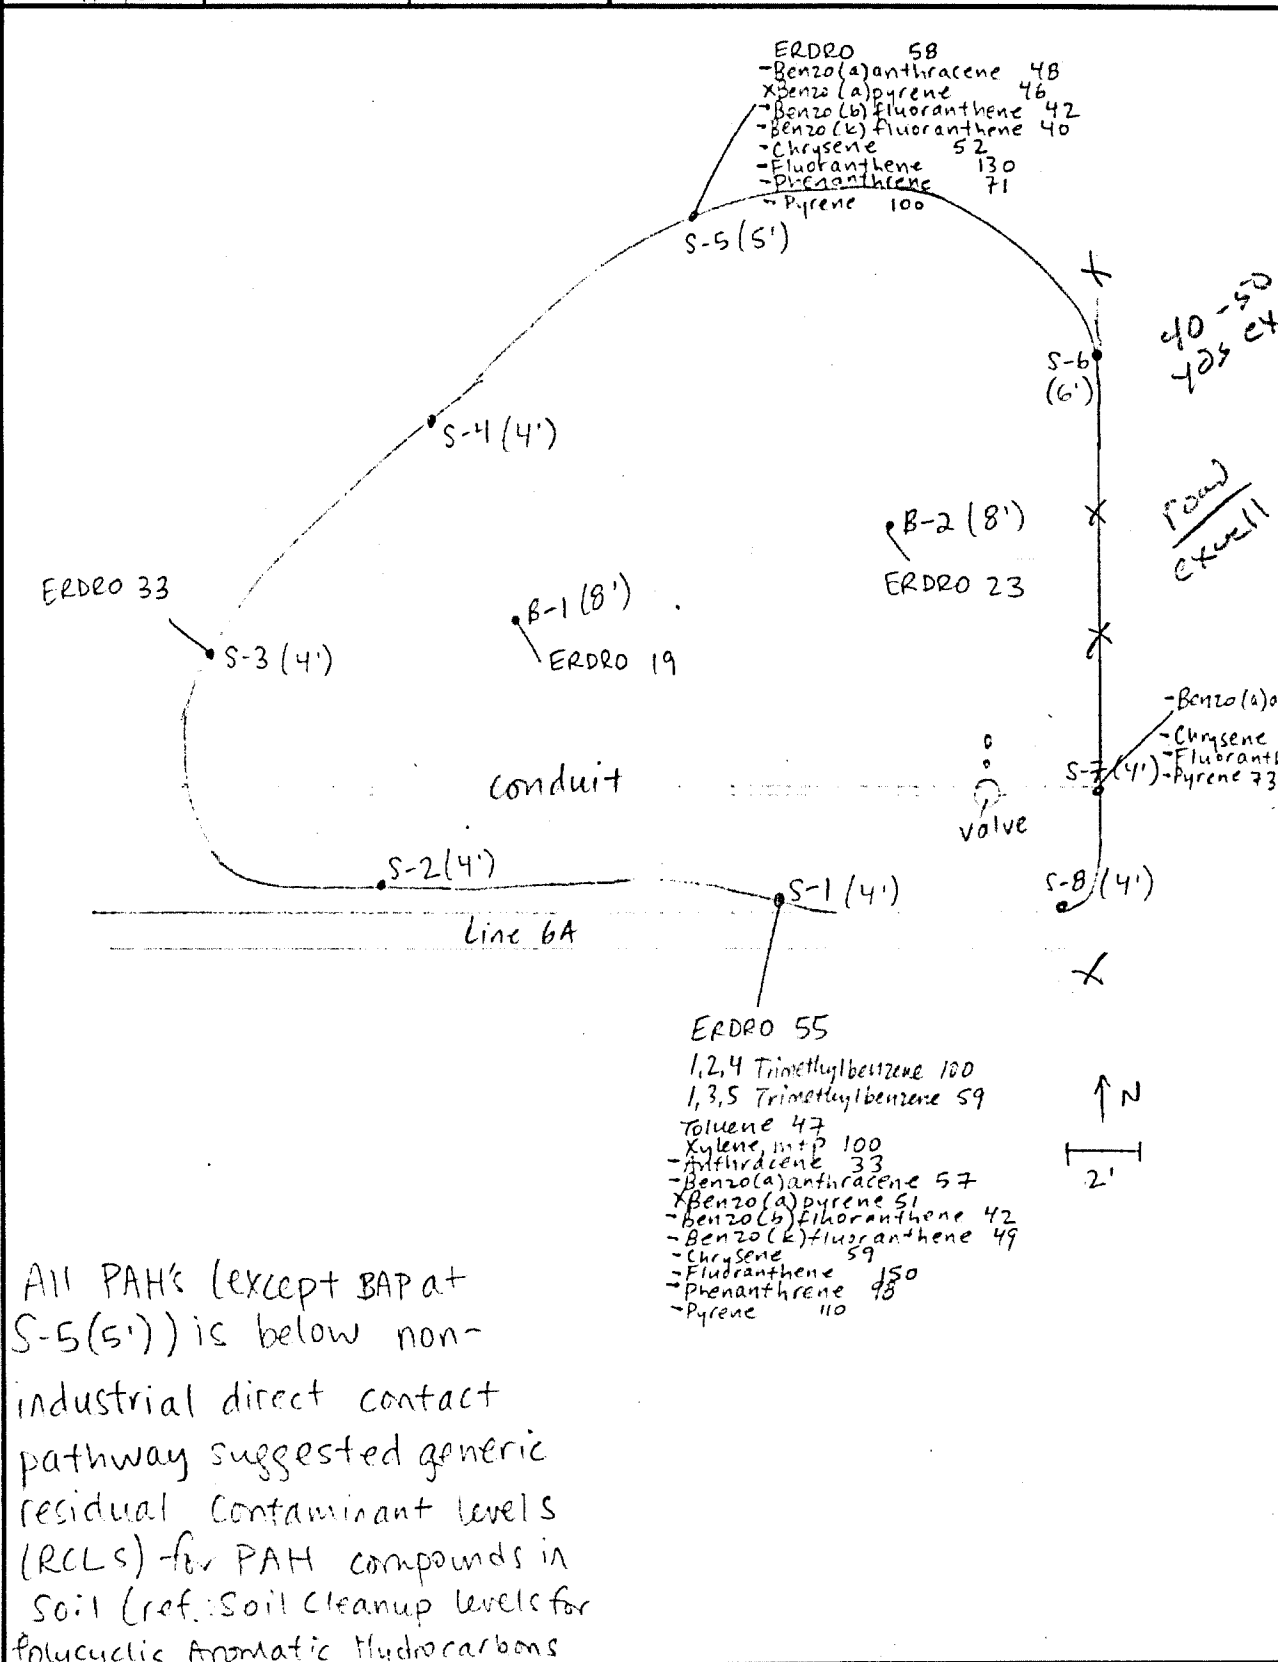 ERDRO 58
-Benzo(a)anthracene 48
xBenzo (a)pyrene 46
-Benzo(b)fluoranthene 42
-Benzo(k)fluoranthene 40
-Chrysene 52
-Fluoranthene 130
-Phenanthrene 71
-Pyrene 100
S-5 (5')
X
40-50
yds ex
S-6
(6')
S-4 (4')
B-2 (8')
X
road
ERDRO 23
ERDRO 33
B-1 (8')
X
S-3 (4')
ERDRO 19
-Benzo(a)a
-Chrysene
-Fluoranth
S-7 (4') -Pyrene 73
conduit
valve
S-2 (4')
S-1 (4')
S-8 (4')
Line 6A
X
ERDRO 55
1,2,4 Trimethylbenzene 100
1,3,5 Trimethylbenzene 59
Toluene 47
Xylene, m+p 100
-Anthracene 33
-Benzo(a)anthracene 57
xBenzo(a)pyrene 51
-Benzo(b)fluoranthene 42
-Benzo(k)fluoranthene 49
-Chrysene 59
-Fluoranthene 150
-Phenanthrene 98
-Pyrene 110
N
2'
All PAH's (except BAP at
S-5(5')) is below non-
industrial direct contact
pathway suggested generic
residual contaminant levels
(RCLs) for PAH compounds in
soil (ref.: Soil Cleanup levels for
Polycyclic Aromatic Hydrocarbons